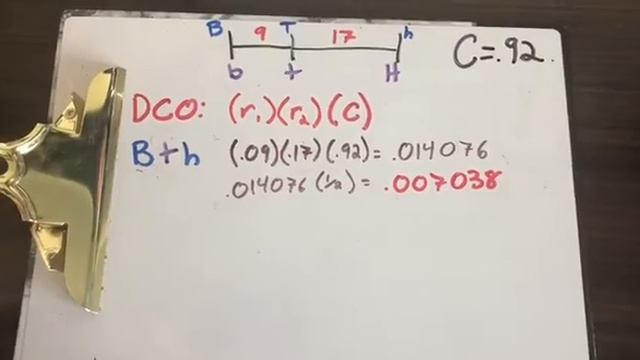 B 9 T 17 h
b t H
C=.92.
DCO: (r₁)(r₂)(C)
B t h (.09)(.17)(.92)= .014076
.014076 (1/2) = .007038